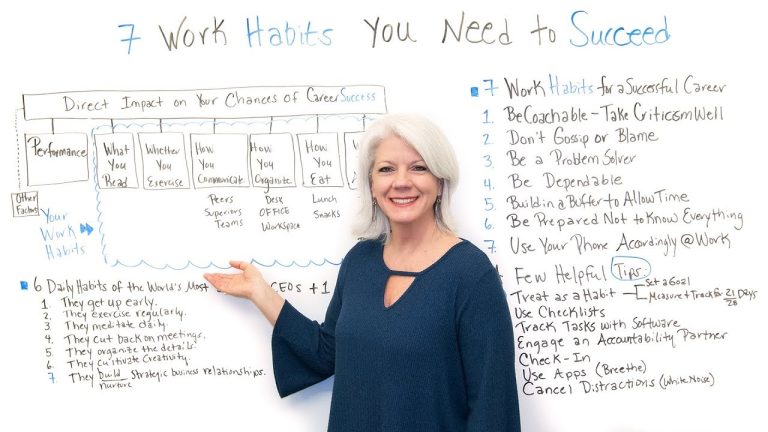 7 Work Habits You Need to Succeed
Direct Impact on Your Chances of Career Success
Performance
What You Read
Whether You Exercise
How You Communicate
How You Organize
How You Eat
Peers
Superiors
Teams
Desk
OFFICE
Workspace
Lunch
Snacks
Other Factors
Your
Work
Habits
6 Daily Habits of the World's Most CEOs + 1
1. They get up early.
2. They exercise regularly.
3. They meditate daily.
4. They cut back on meetings.
5. They organize the details.
6. They cultivate Creativity.
7. They build strategic business relationships.
nurture
7 Work Habits for a Successful Career
1. Be Coachable - Take Criticism Well
2. Don't Gossip or Blame
3. Be a Problem Solver
4. Be Dependable
5. Build in a Buffer to Allow Time
6. Be Prepared Not to Know Everything
7 Use Your Phone Accordingly @ Work
Few Helpful Tips:
Treat as a Habit
Set a Goal
Measure + Track for 21/28 Days
Use Checklists
Track Tasks with Software
Engage an Accountability Partner
Check-In
Use Apps (Breethe)
Cancel Distractions (White Noise)